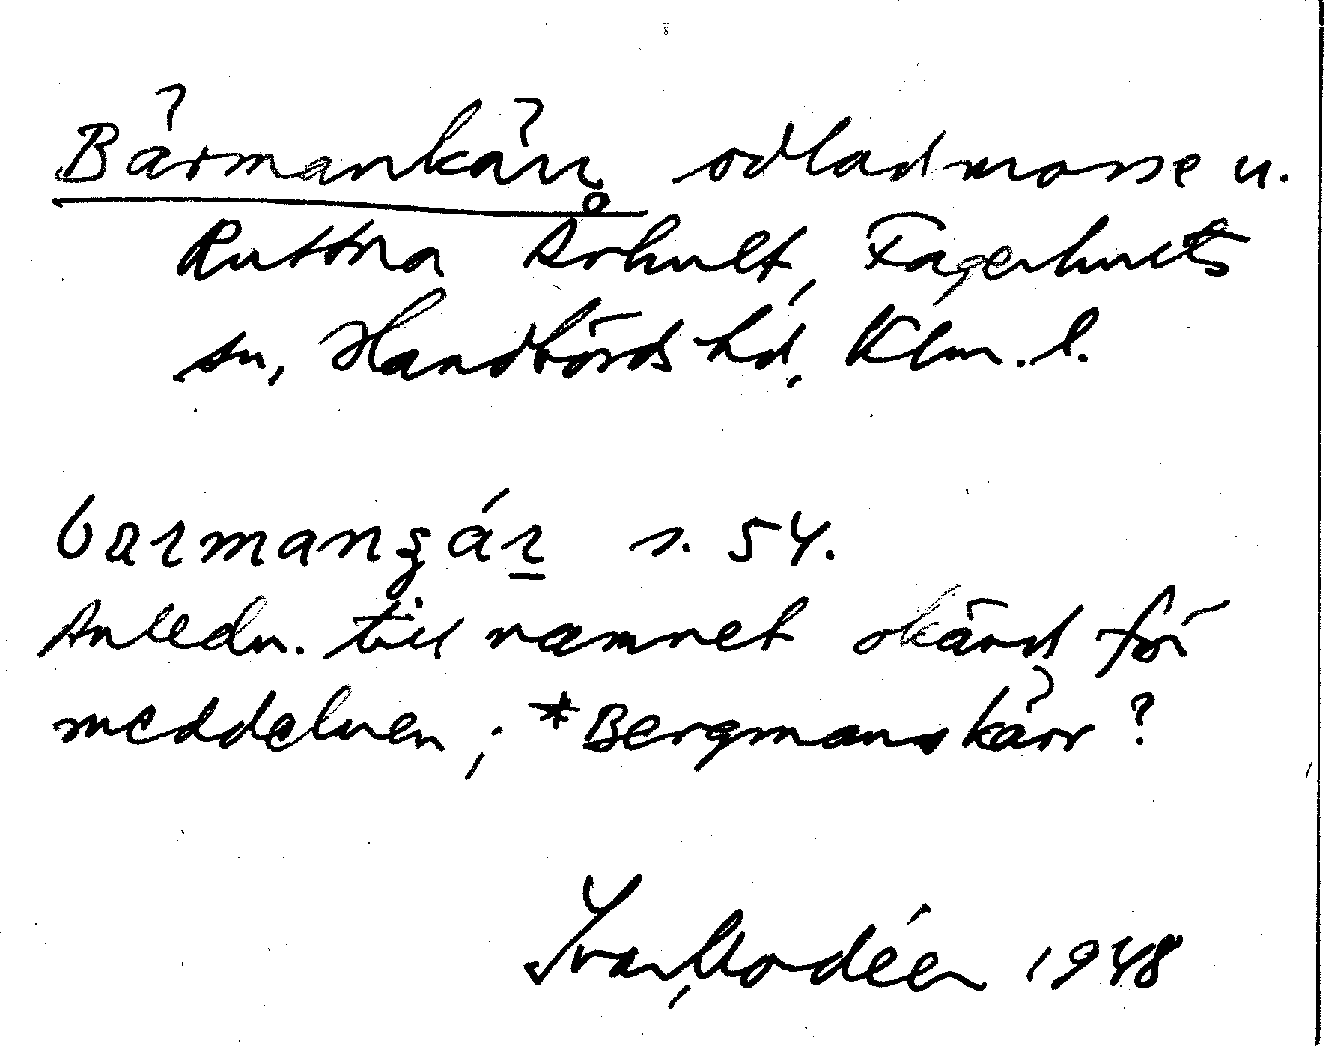 Bärmankärr, odlad mosse u.
Ruttna Århult, Fagerhults
sn, Handbörds hd, Klm. l.
barmangár s. 54.
Anledn. till namnet okänd för
meddelaren; *Bergmanskärr?
Ivar Modéer 1948